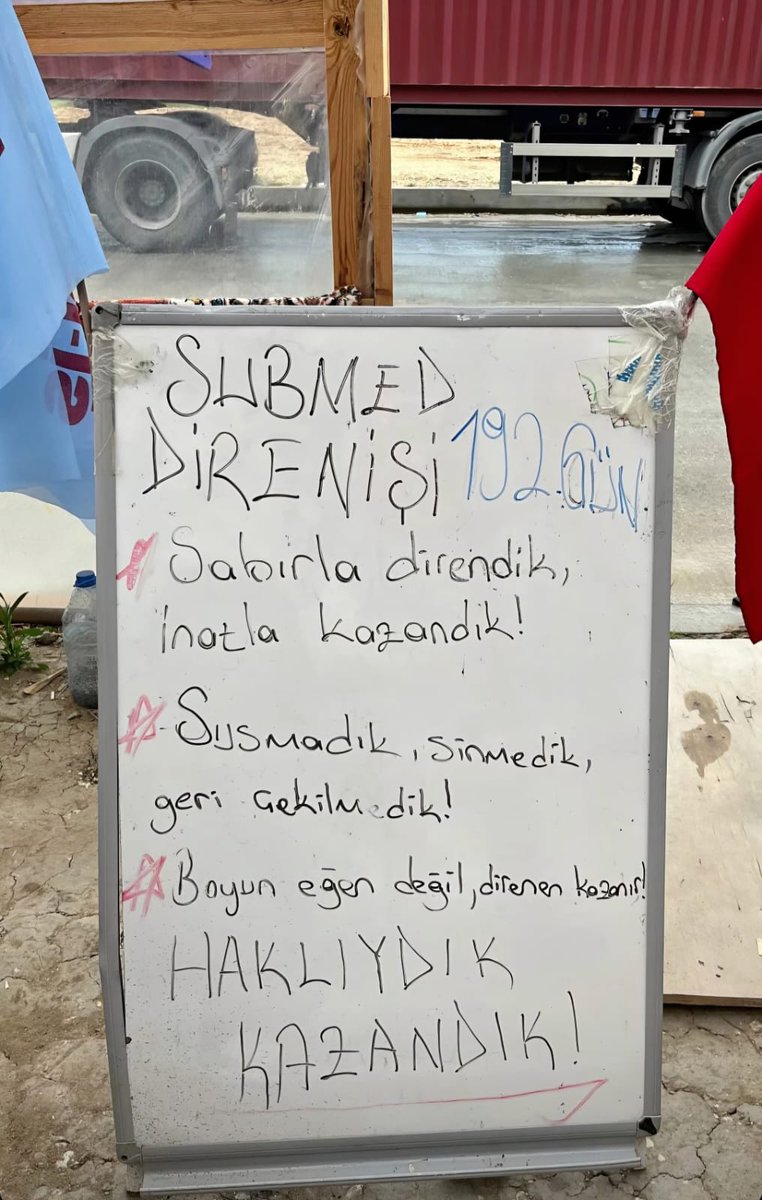 SUBMED
DİRENİŞİ 192.GÜN
Sabırla direndik,
inatla kazandık!
Susmadık, sinmedik,
geri çekilmedik!
Boyun eğen değil, direnen kazanır!
HAKLIYDIK
KAZANDIK!